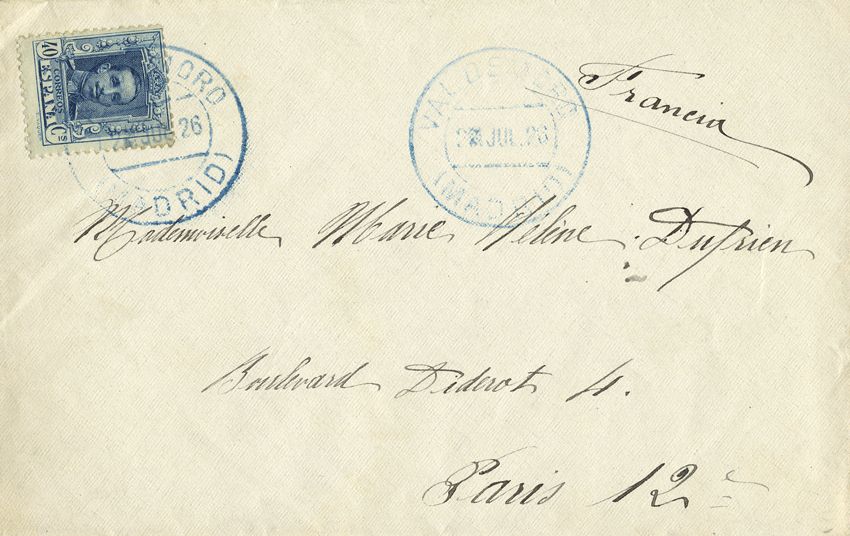 40 ESPAÑA Cs
CORREOS
26
(MADRID)
VALDEMORO
JUL. 26
(MADRID)
Francia
Mademoiselle Marie Hélène Dufrien
Boulevard Diderot 4.
Paris 12e